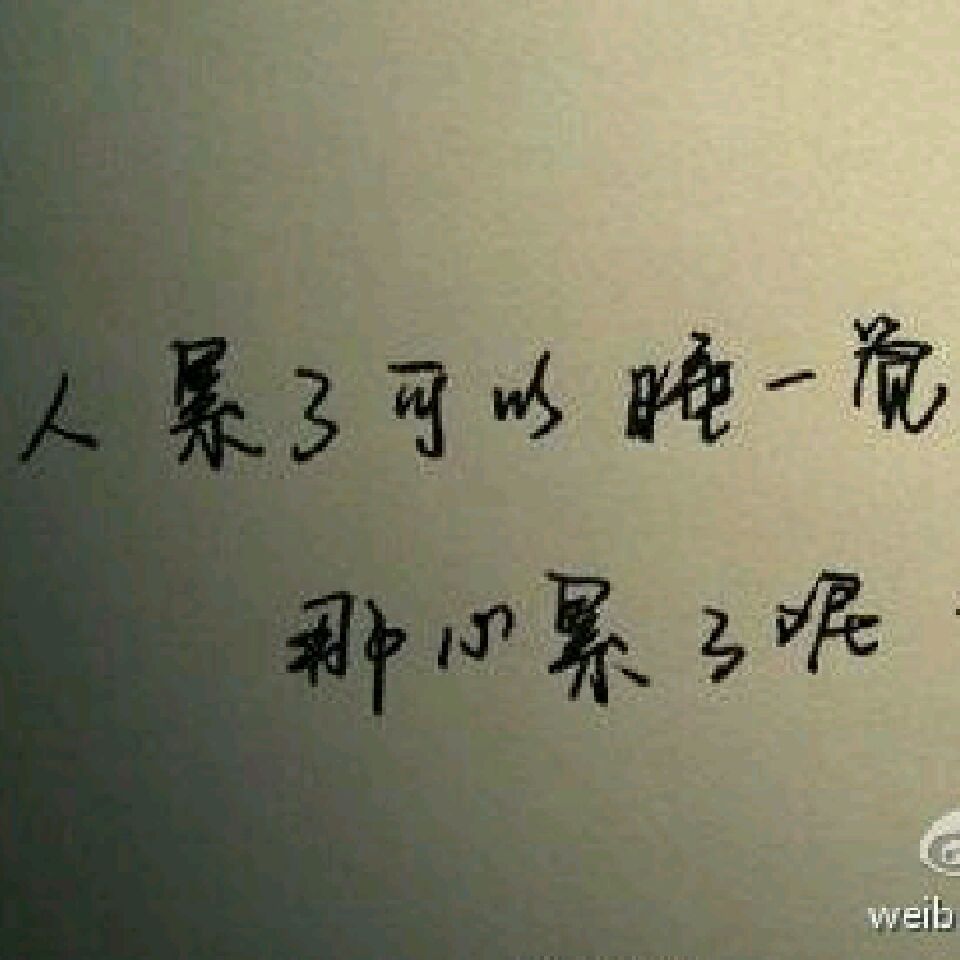 人累了可以睡一觉
那心累了呢
weib